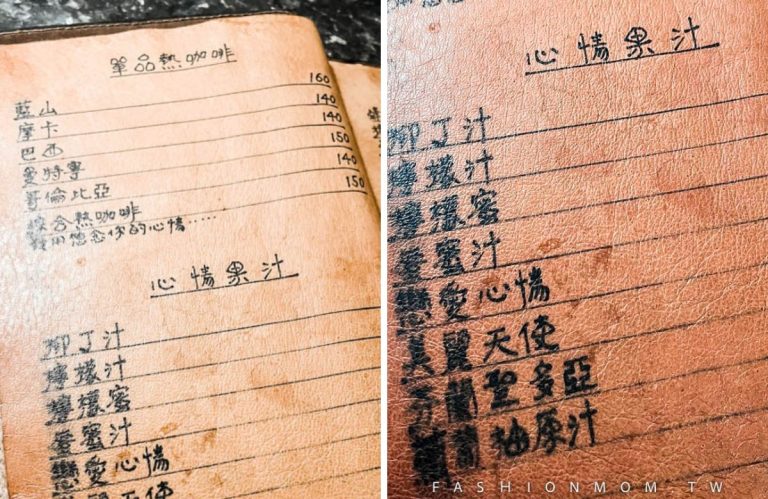 單品熱咖啡
藍山 160
摩卡 140
巴西 140
曼特寧 150
哥倫比亞 140
綜合熱咖啡 150
用念你的心情.....
心情果汁
柳丁汁
檸檬汁
檸檬蜜
蛋蜜汁
戀愛心情
美麗天使
心情果汁
柳丁汁
檸檬汁
檸檬蜜
蛋蜜汁
戀愛心情
美麗天使
芬蘭聖多亞
葡萄柚原汁
FASHIONMOM.TW